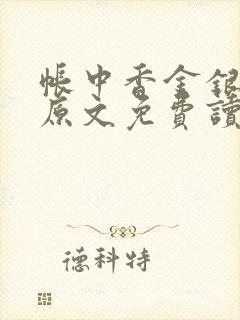 帳中香金銀
原文免費讀
德科特